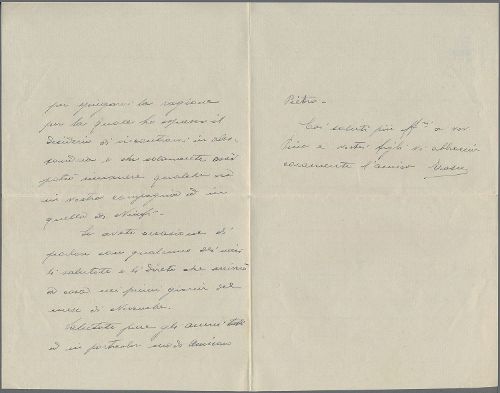 per spiegarvi la ragione
per la quale ho espresso il
desiderio di incontrarvi in
e che solamente così
potrò rimanere qualche ora
in vostra compagnia ed in
quella di
Se avete occasione di
parlare con qualcuno dei miei
li salutate e li direte che
a casa nei primi giorni del
mese di Novembre.
Salutate pure gli amici tutti
ed in particolar modo
Pietro.
Coi saluti più a voi
e vostri figli vi abbraccio
caramente l'amico